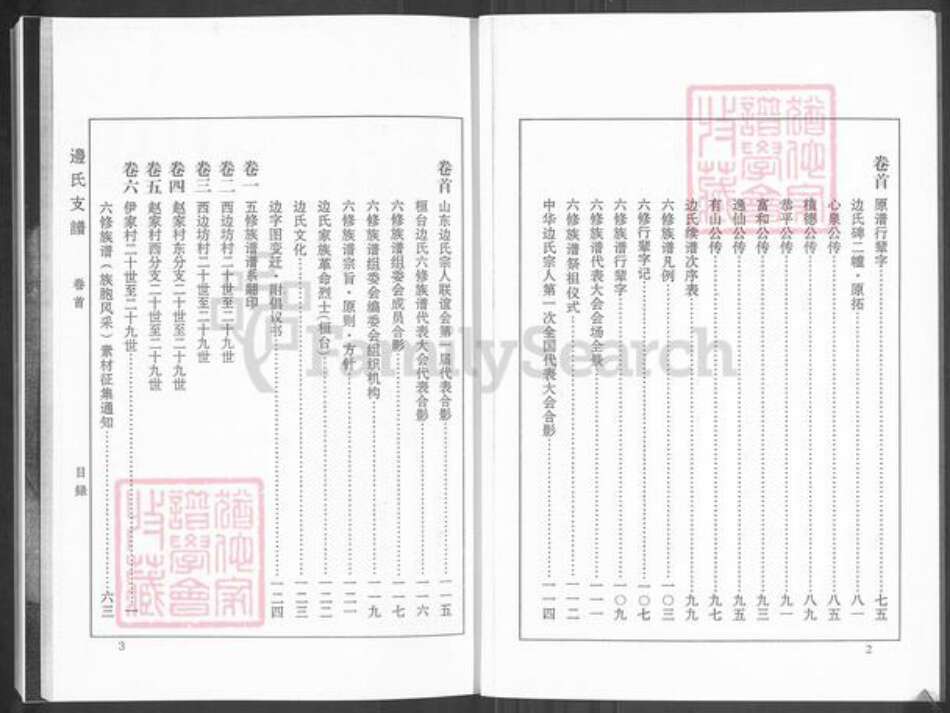 卷首
原谱行辈字 七五
边氏碑二幢·原拓 八一
心泉公传 八五
植德公传 八九
恭平公传 九一
富和公传 九三
逸仙公传 九五
有山公传 九七
边氏续谱次序表 九九
六修族谱凡例 一〇三
六修行辈字记 一〇七
六修族谱行辈字 一〇九
六修族谱代表大会会场全景 一一一
六修族谱祭祖仪式 一一二
中华边氏宗人第一次全国代表大会合影 一一四
2
卷首
山东边氏宗人联谊会第一届代表合影 一一五
桓台边氏六修族谱代表大会代表合影 一一六
六修族谱组委会成员合影 一一七
六修族谱组委会编委会组织机构 一一九
六修族谱宗旨·原则·方针 一二一
边氏家族革命烈士(桓台) 一二二
边氏文化 一二三
边字图变迁·附倡议书 一二四
卷一 五修族谱谱系翻印
卷二 西边坊村二十世至二十九世
卷三 西边坊村二十世至二十九世
卷四 赵家村东分支二十世至二十九世
卷五 赵家村西分支二十世至二十九世
卷六 伊家村二十世至二十九世 一
六修族谱(族胞风采)素材征集通知 六三
邊氏支譜
卷首
目録
3
FamilySearch